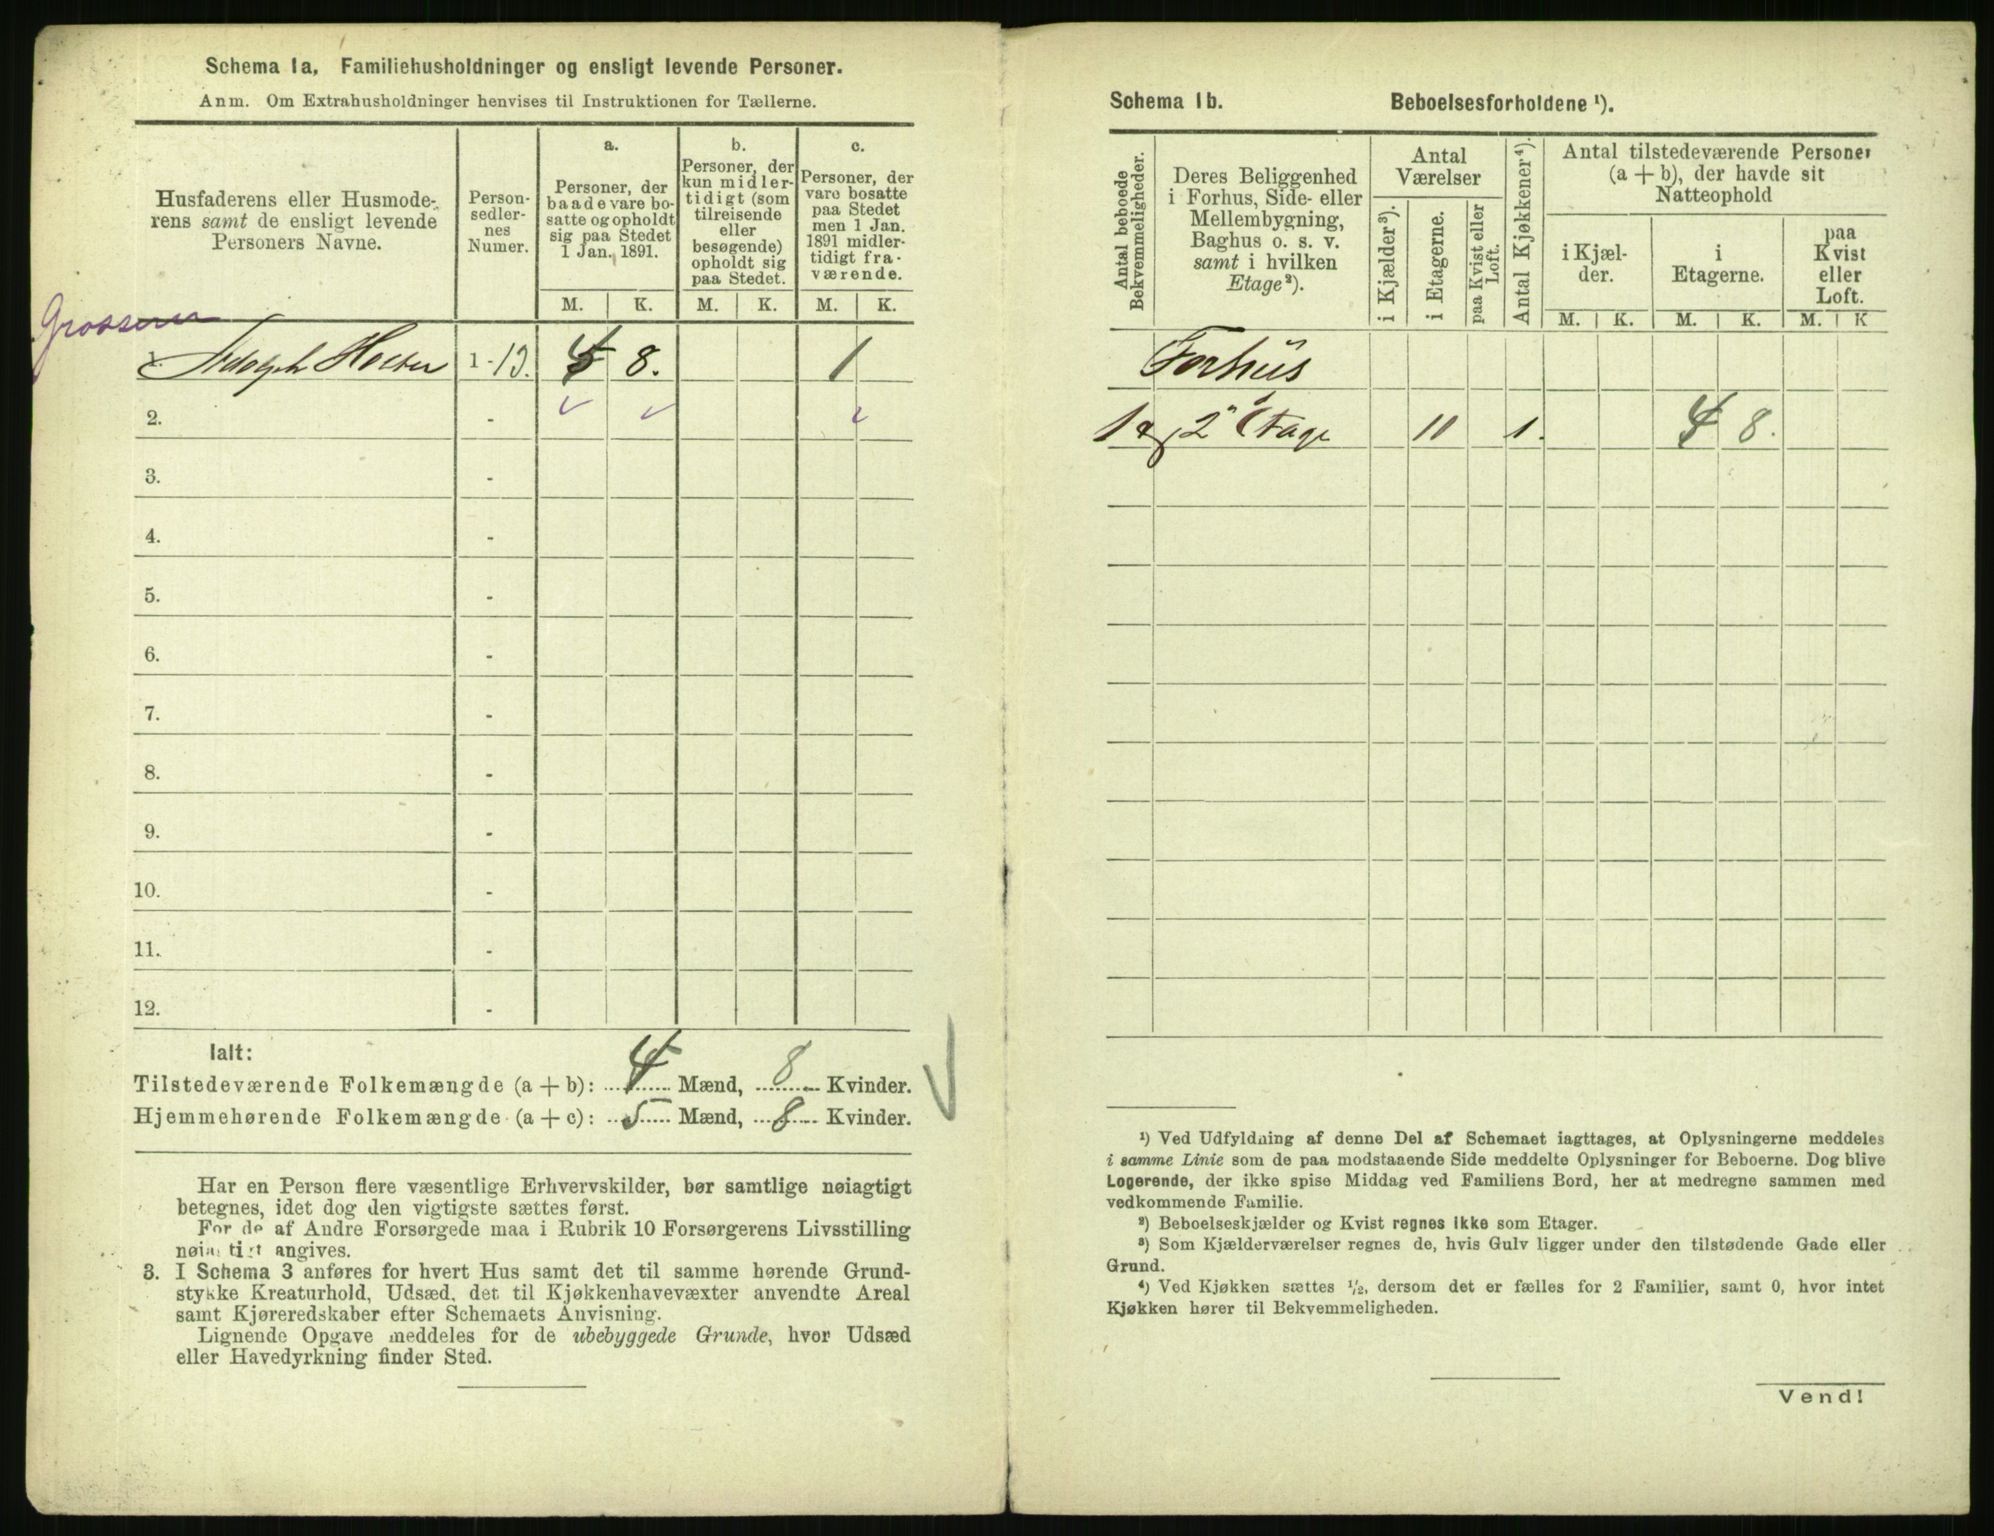 Schema 1a, Familiehusholdninger og ensligt levende Personer.
Anm. Om Extrahusholdninger henvises til Instruktionen for Tællerne.
Husfaderens eller Husmode-
rens samt de ensligt levende
Personers Navne.
Person-
sedler-
nes
Numer.
a.
Personer, der
baade vare bo-
satte og opholdt
sig paa Stedet
1 Jan. 1891.
b.
Personer, der
kun midler-
tidigt (som
tilreisende
eller
besøgende)
opholdt sig
paa Stedet.
c.
Personer, der
vare bosatte
paa Stedet
men 1 Jan.
1891 midler-
tidigt fra-
værende.
M. K. M. K. M. K.
Grosserer
1. Adolph Holter 1 - 13. 4 8. 1
2. -
3. -
4. -
5. -
6. -
7. -
8. -
9. -
10. -
11. -
12. -
Ialt:
Tilstedeværende Folkemængde (a + b): 4 Mænd, 8 Kvinder.
Hjemmehørende Folkemængde (a + c): 5 Mænd, 8 Kvinder.
Har en Person flere væsentlige Erhvervskilder, bør samtlige nøiagtigt
betegnes, idet dog den vigtigste sættes først.
For de af Andre Forsørgede maa i Rubrik 10 Forsørgerens Livsstilling
nøiagtigt angives.
3. I Schema 3 anføres for hvert Hus samt det til samme hørende Grund-
stykke Kreaturhold, Udsæd, det til Kjøkkenhavevæxter anvendte Areal
samt Kjøreredskaber efter Schemaets Anvisning.
Lignende Opgave meddeles for de ubebyggede Grunde, hvor Udsæd
eller Havedyrkning finder Sted.
Schema 1b. Beboelsesforholdene ¹).
Antal beboede
Bekvemmeligheder.
Deres Beliggenhed
i Forhus, Side- eller
Mellembygning,
Baghus o. s. v.
samt i hvilken
Etage²).
Antal
Værelser
i Kjælder³).
i Etagerne.
paa Kvist eller
Loft.
Antal Kjøkkener⁴).
Antal tilstedeværende Personer
(a + b), der havde sit
Natteophold
i Kjæl-
der.
i
Etagerne.
paa
Kvist
eller
Loft.
M. K. M. K. M. K
Forhus
1 og 2 Etage 11 1. 4 8.
¹) Ved Udfyldning af denne Del af Schemaet iagttages, at Oplysningerne meddeles
i samme Linie som de paa modstaaende Side meddelte Oplysninger for Beboerne. Dog blive
Logerende, der ikke spise Middag ved Familiens Bord, her at medregne sammen med
vedkommende Familie.
²) Beboelseskjælder og Kvist regnes ikke som Etager.
³) Som Kjælderværelser regnes de, hvis Gulv ligger under den tilstødende Gade eller
Grund.
⁴) Ved Kjøkken sættes ½, dersom det er fælles for 2 Familier, samt 0, hvor intet
Kjøkken hører til Bekvemmeligheden.
Vend!